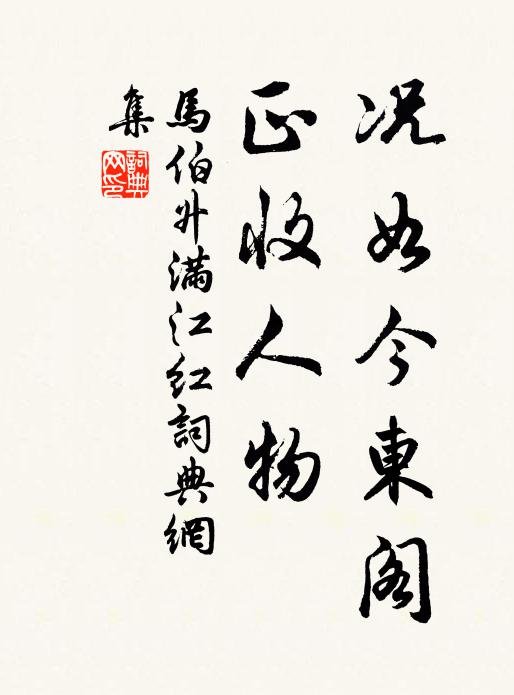 况如今東阁
正收人物
馬伯升滿江红詞典網
集
詞典
网印